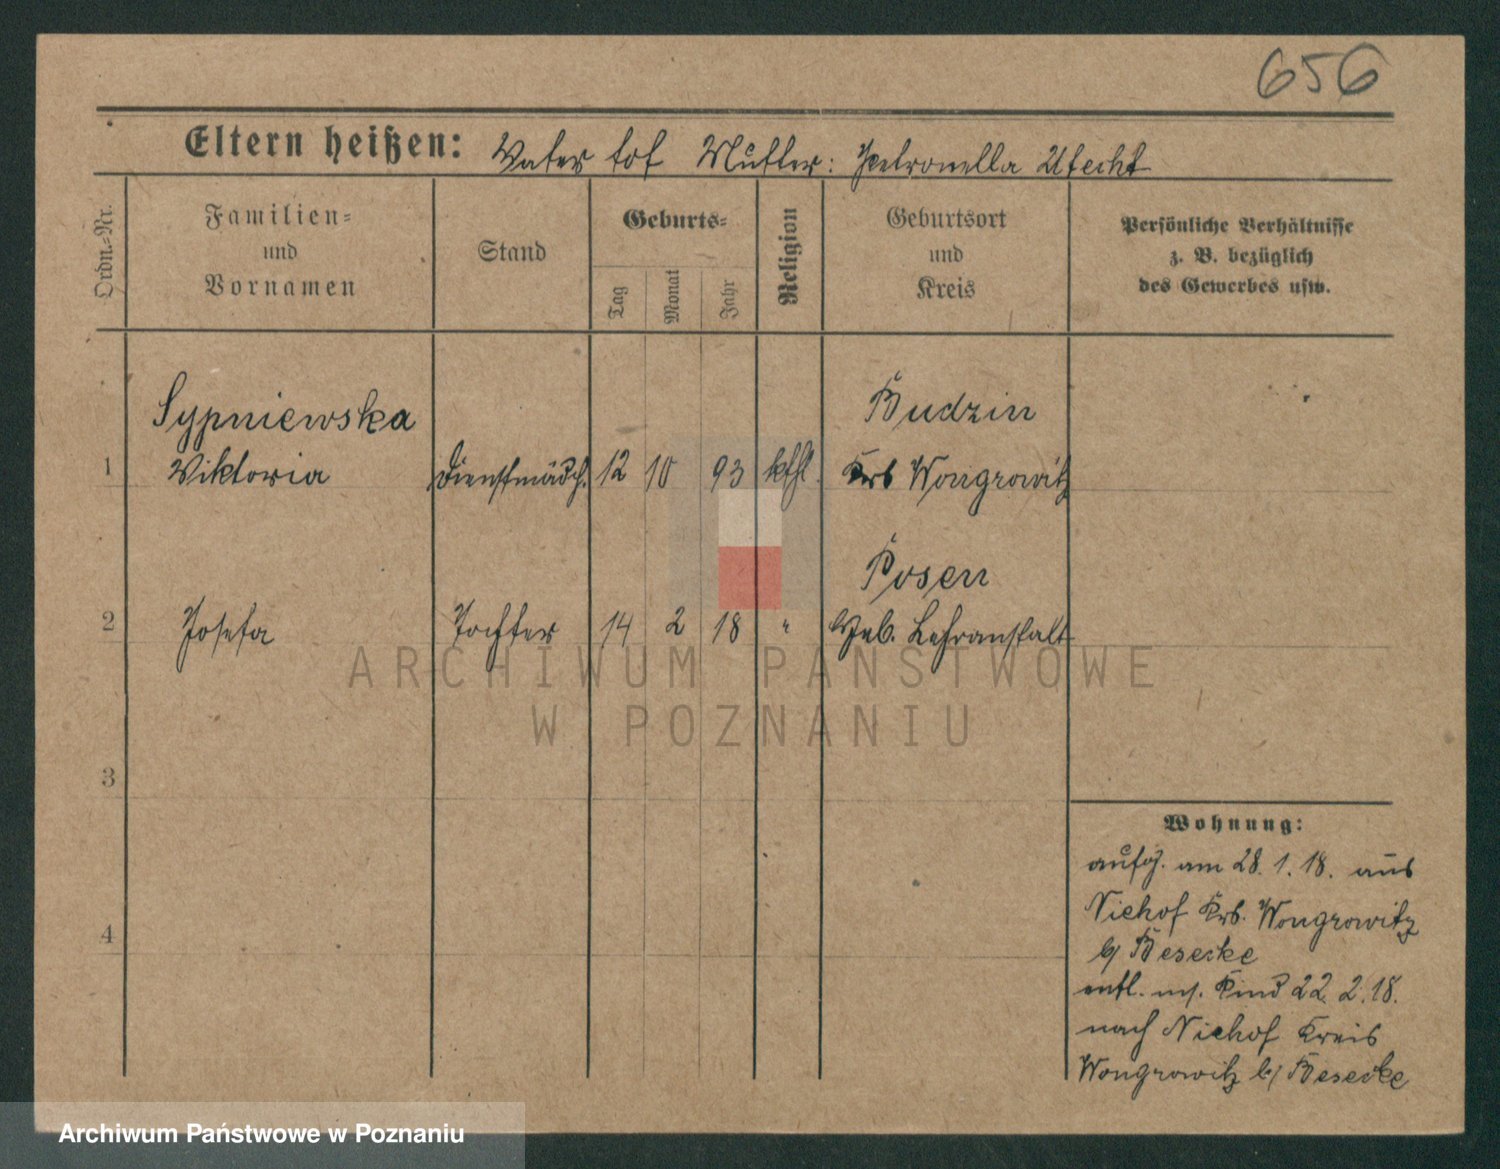 656
Eltern heißen: Vater tot Mutter: Petronella Utecht
Ordn.=Nr.
Familien=
und
Vornamen
Stand
Geburts=
Tag
Monat
Jahr
Religion
Geburtsort
und
Kreis
Persönliche Verhältnisse
z. B. bezüglich
des Gewerbes usw.
Sypniewska Budzin
1 Viktoria Dienstmädch. 12 10 93 kthl. Krs Wongrowitz
Posen
2 Josefa Tochter 14 2 18 " Heb. Lehranstalt
3
4
Wohnung:
aufg. am 28. 1. 18. aus
Niehof Krs. Wongrowitz
b/ Besecke
entl. m/. Kind 22. 2. 18.
nach Niehof Kreis
Wongrowitz b/ Besecke
ARCHIWUM PAŃSTWOWE
W POZNANIU
Archiwum Państwowe w Poznaniu